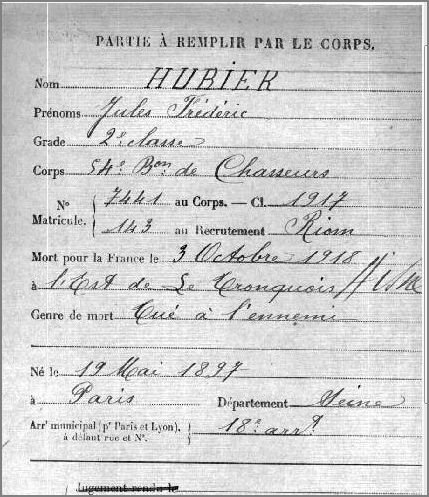 PARTIE À REMPLIR PAR LE CORPS.
Nom HUBIER
Prénoms Jules Frédéric
Grade 2e classe
Corps 54e Bon de Chasseurs
No 7441 au Corps. — Cl. 1917
Matricule. 143 au Recrutement Riom
Mort pour la France le 3 Octobre 1918
à l'Est de Le Tronquois Aisne
Genre de mort Tué à l'ennemi
Né le 19 Mai 1897
à Paris Département Seine
Arrt municipal (pr Paris et Lyon), 18e arrt
à défaut rue et No.
Jugement rendu le